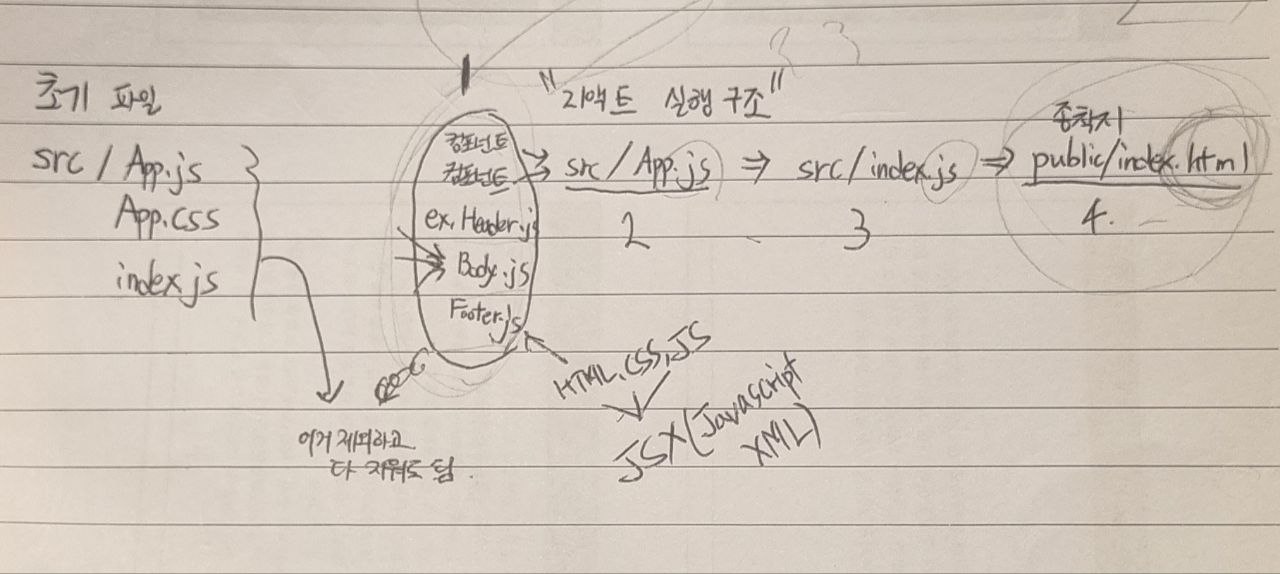 초기 파일
src / App.js
App.css
index.js
이거 제외하고
다 지워도 됨.
"리액트 실행 구조"
1
컴포넌트
컴포넌트
ex. Header.js
Body.js
Footer.js
⇒ src / App.js ⇒ src / index.js ⇒ public/index.html
종착지
2
3
4.
HTML, CSS, JS
JSX (Javascript
XML)